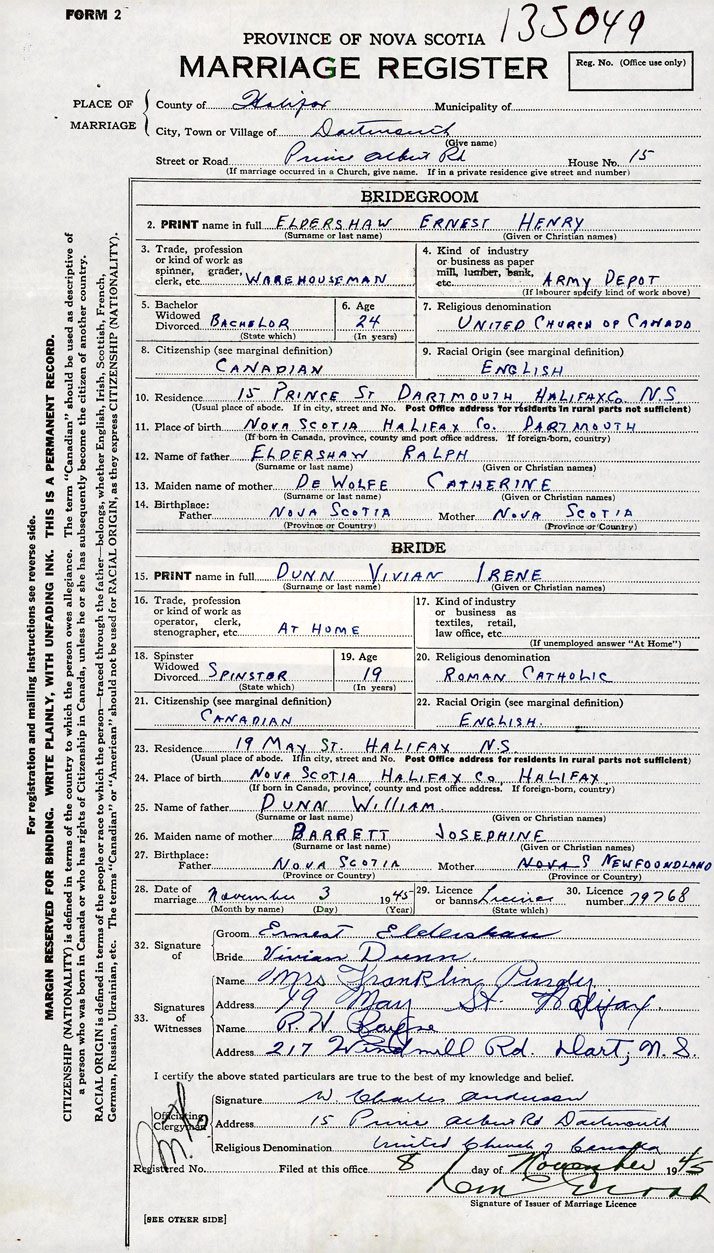 FORM 2
135049
PROVINCE OF NOVA SCOTIA
MARRIAGE REGISTER
Reg. No. (Office use only)
PLACE OF MARRIAGE
County of Halifax Municipality of
City, Town or Village of Dartmouth
(Give name)
Street or Road Prince Albert Rd House No. 15
(If marriage occurred in a Church, give name. If in a private residence give street and number)
BRIDEGROOM
2. PRINT name in full ELDERSHAW ERNEST HENRY
(Surname or last name) (Given or Christian names)
3. Trade, profession
or kind of work as
spinner, grader,
clerk, etc. WAREHOUSEMAN
4. Kind of industry
or business as paper
mill, lumber, bank,
etc. ARMY DEPOT
(If labourer specify kind of work above)
5. Bachelor
Widowed
Divorced BACHELOR
(State which)
6. Age
24
(In years)
7. Religious denomination
UNITED CHURCH OF CANADA
8. Citizenship (see marginal definition)
CANADIAN
9. Racial Origin (see marginal definition)
ENGLISH
10. Residence 15 PRINCE ST DARTMOUTH, HALIFAX Co. N.S
(Usual place of abode. If in city, street and No. Post Office address for residents in rural parts not sufficient)
11. Place of birth NOVA SCOTIA HALIFAX Co. DARTMOUTH
(If born in Canada, province, county and post office address. If foreign-born, country)
12. Name of father ELDERSHAW RALPH
(Surname or last name) (Given or Christian names)
13. Maiden name of mother DE WOLFE CATHERINE
(Surname or last name) (Given or Christian names)
14. Birthplace:
Father NOVA SCOTIA Mother NOVA SCOTIA
(Province or Country) (Province or Country)
BRIDE
15. PRINT name in full DUNN VIVIAN IRENE
(Surname or last name) (Given or Christian names)
16. Trade, profession
or kind of work as
operator, clerk,
stenographer, etc. AT HOME
17. Kind of industry
or business as
textiles, retail,
law office, etc.
(If unemployed answer "At Home")
18. Spinster
Widowed
Divorced SPINSTOR
(State which)
19. Age
19
(In years)
20. Religious denomination
ROMAN CATHOLIC
21. Citizenship (see marginal definition)
CANADIAN
22. Racial Origin (see marginal definition)
ENGLISH.
23. Residence 19 MAY ST. HALIFAX N.S.
(Usual place of abode. If in city, street and No. Post Office address for residents in rural parts not sufficient)
24. Place of birth NOVA SCOTIA, HALIFAX Co, HALIFAX
(If born in Canada, province, county and post office address. If foreign-born, country)
25. Name of father DUNN WILLIAM
(Surname or last name) (Given or Christian names)
26. Maiden name of mother BARRETT JOSEPHINE
(Surname or last name) (Given or Christian names)
27. Birthplace:
Father NOVA SCOTIA Mother NOVA S NEWFOUNDLAND
(Province or Country) (Province or Country)
28. Date of
marriage November 3 1945
(Month by name) (Day) (Year)
29. Licence
or banns License
(State which)
30. Licence
number 79768
32. Signature
of
Groom Ernest Eldershaw
Bride Vivian Dunn.
33. Signatures
of
Witnesses
Name Mrs Franklin Purdy
Address 19 May St. Halifax.
Name R. H
Address 217 Windmill Rd. Dart, N.S.
I certify the above stated particulars are true to the best of my knowledge and belief.
Officiating
Clergyman
Signature W. Charles Anderson
Address 15 Prince Albert Rd Dartmouth
Religious Denomination United Church of Canada
Registered No. Filed at this office 8 day of November 1945
Signature of Issuer of Marriage Licence
[SEE OTHER SIDE]
For registration and mailing instructions see reverse side.
MARGIN RESERVED FOR BINDING. WRITE PLAINLY, WITH UNFADING INK. THIS IS A PERMANENT RECORD.
CITIZENSHIP (NATIONALITY) is defined in terms of the country to which the person owes allegiance. The term "Canadian" should be used as descriptive of
a person who was born in Canada or who has rights of Citizenship in Canada, unless he or she has subsequently become the citizen of another country.
RACIAL ORIGIN is defined in terms of the people or race to which the person—traced through the father—belongs, whether English, Irish, Scottish, French,
German, Russian, Ukrainian, etc. The terms "Canadian" or "American" should not be used for RACIAL ORIGIN, as they express CITIZENSHIP (NATIONALITY).